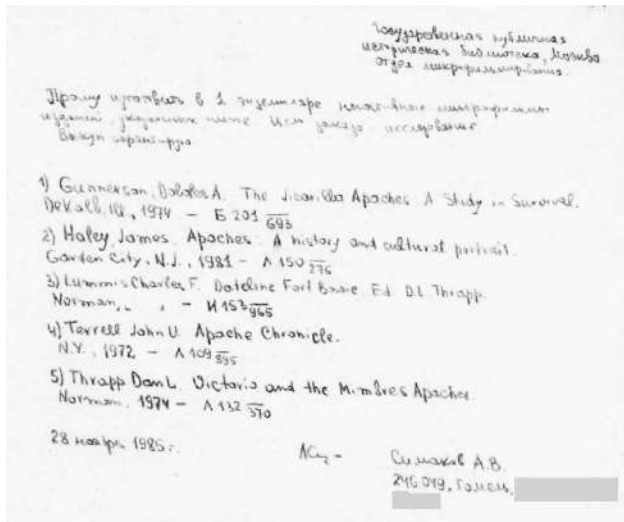 Государственная публичная
историческая библиотека, Москва
отдел микрофильмирования.
Прошу изготовить в 1 экземпляре негативные микрофильмы
изданий, указанных ниже. Цель заказа исследование.
Выкуп гарантирую
1) Gunnerson, Dolores A. The Jicarilla Apaches. A Study in Survival.
DeKalb, Ill., 1974 – Б 201/693
2) Haley, James. Apaches. A history and cultural portrait.
Garden City, N.J., 1981 – Л 150/276
3) Lummis Charles F. Dateline Fort Bowie. Ed. D.L. Thrapp.
Norman, – И 153/965
4) Terrell John U. Apache Chronicle.
N.Y., 1972 – Л 109/895
5) Thrapp Dan L. Victorio and the Mimbres Apaches.
Norman, 1974 – Л 132/370
28 ноября 1985 г.
Симаков А.В.
246049, Гомель,